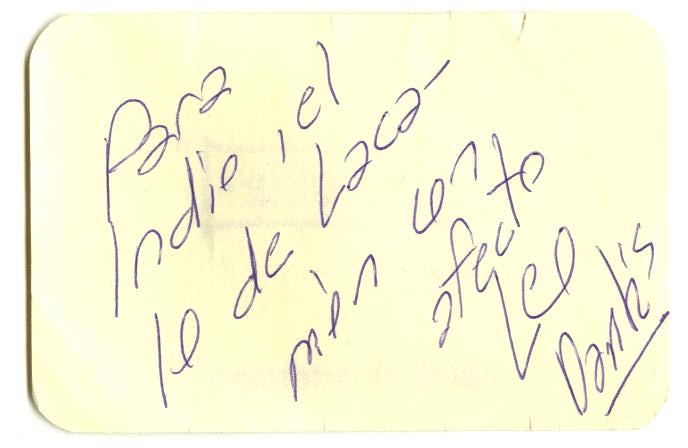 Para
Indie, el
le de Laca-
mén con
afecto
Leo
Dantés